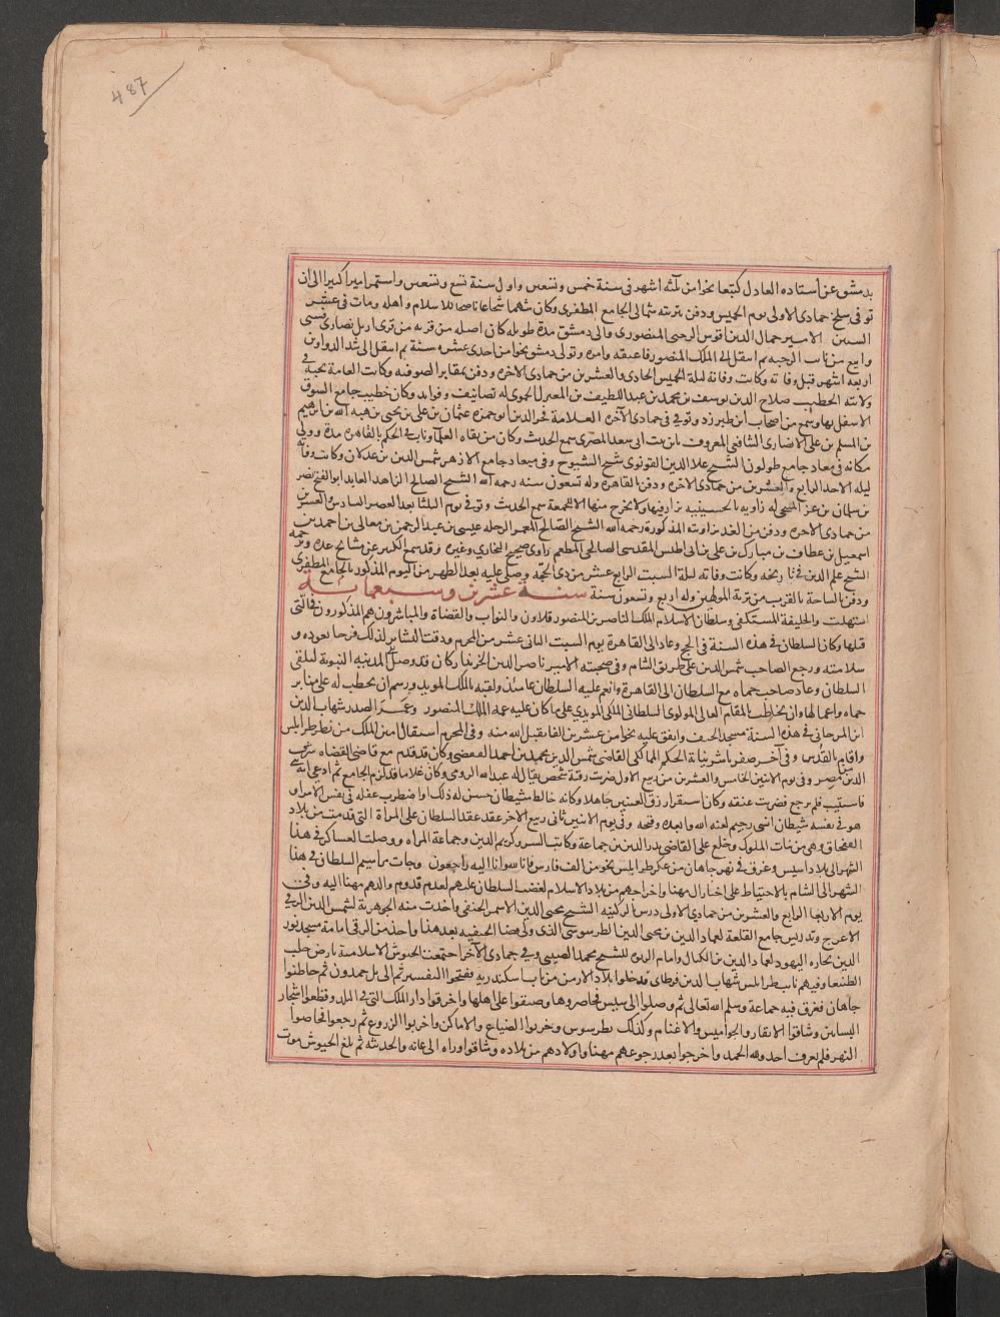 487
بدمشق عن استاده العادل كتبغا نحوا من ثلثه اشهر في سنة خمس وتسعين واول سنة تسع وتسعين واستمر اميرا كبيرا الى ان
توفى سلخ جمادى الاولى يوم الخميس ودفن بتربته شمالى الجامع المظفرى وكان شهما شجاعا ناصحا للاسلام واهله ومات في عشر
الستين الامير جمال الدين اقوس الرحبى المنصورى والى دمشق مدة طويله كان اصله من قريه من قرى اربل نصارى فسبى
وابيع من نائب الرحبه ثم انتقل الى الملك المنصور فاعتقه وامره وتولى دمشق نحوا من احدى عشره سنة ثم انتقل الى شد الدواوين
اربعه اشهر قبل وفاته وكانت وفاته ليلة الخميس الحادى والعشرين من جمادى الاخره ودفن بمقابر الصوفيه وكانت العامة تحبه في
ولايته الخطيب صلاح الدين يوسف بن محمد بن عبد اللطيف بن المعتزل الحموى له تصانيف وفوايد وكان خطيب جامع السوق
الاسفل بها وسمع من اصحاب ابن طبرزد وتوفي في جمادى الآخره العلامة فخر الدين ابو حمزه عثمان بن على بن يحيى بن هبه الله بن ابرهيم
بن المسلم بن على الانصارى الشافعى المعروف بابن بنت ابى سعد المصرى سمع الحديث وكان من بقاه العلما وناب في الحكم بالقاهره مدة وولى
مكانه في معاد جامع طولون الشيخ علا الدين القونوى شيخ الشيوخ وفي ميعاد جامع الازهر شمس الدين بن عدلان وكانت وفاته
ليله الاحد الرابع والعشرين من جمادى الاخره ودفن بالقاهره وله تسعون سنه رحمه الله الشيخ الصالح الزاهد العابد ابو الفتح نصر
بن سلمان بن عمر المنبجى له زاويه بالحسينيه يزار فيها ولا يخرج منها الا للجمعة سمع الحديث وتوفي يوم الثلثا بعد العصر السادس والعشرين
من جمادى الاخره ودفن من الغد بزاويته المذكورة رحمه الله الشيخ الصالح المعمر الرحله عيسى بن عبد الرحمن بن معالى بن احمد بن
اسمعيل بن عطاف بن مبارك بن على بن ابى الجيش المقدسى الصالحى المطعم راوى صحيح البخارى وغيره وقد سمع الكثير عن مشايخ عده وترجمه
الشيخ علم الدين في تاريخه وكانت وفاته ليلة السبت الرابع عشر من ذى الحجه وصلى عليه بعد الظهر من اليوم المذكور بالجامع المظفرى
ودفن بالساحة بالقرب من تربة المولهين وله اربع وتسعون سنة سنة عشرين وسبعمايه
استهلت والخليفة المستكفى وسلطان الاسلام الملك الناصر بن المنصور قلاون والنواب والقضاة والمباشرون هم المذكورون في التى
قبلها وكان السلطان في هذه السنة في الحج وعاد الى القاهرة يوم السبت الثانى عشر من المحرم ودقت البشاير لذلك فرحا بعوده و
سلامته ورجع الصاحب شمس الدين على طريق الشام وفي صحبته الامير ناصر الدين الخزندار كان قد وصل المدينه النبوية لتلقى
السلطان وعاد صاحب حماه مع السلطان الى القاهرة وانعم عليه السلطان عامئذ ولقبه بالملك المويد ورسم ان يخطب له على منابر
حماه واعمالها وان يخاطب بالمقام العالى المولوى السلطانى الملكى المويدى على ما كان عليه عمه الملك المنصور وعمر الصدر شهاب الدين
ابن المرجانى في هذه السنة مسجد الخيف وانفق عليه نحوا من عشرين الفا تقبل الله منه وفي المحرم استقال امين الملك من نظر طرابلس
واقام بالقدس وفي آخر صفر باشر نيابة الحكم المالكى القاضى شمس الدين محمد بن احمد القفصى وكان قد قدم مع قاضى القضاه شرف
الدين من مصر وفي يوم الاثنين الخامس والعشرين من ربيع الاول ضربت رقبة شخص يقال له عبد الله الرومى وكان غلاما قد لزم الجامع ثم ادعى انه
فاستتيب فلم يرجع فضربت عنقه وكان اشقر ازرق العينين جاهلا وكانه خالطه شيطان حسن له ذلك واضطرب عقله في نفس الامر او
هو في نفسه شيطان انسى رجيم لعنه الله وابعده وقبحه وفي يوم الاثنين ثانى ربيع الاخر عقد عقد السلطان على المراة التى قدمت من بلاد
القفجاق وهى من بنات الملوك وخلع على القاضى بدر الدين بن جماعة وكاتب السر وكريم الدين وجماعة المراه ووصلت العساكر في هذا
الشهر الى بلاد سيس وغرق في نهر جاهان من عسكر طرابلس نحو من الف فارس فانا لله وانا اليه راجعون وجات مراسيم السلطان في هذا
الشهر الى الشام بالاحتياط على اخبار ال مهنا واخراجهم من بلاد الاسلام لغضب السلطان عليهم لعدم قدوم والدهم مهنا اليه وفي
يوم الاربعا الرابع والعشرين من جمادى الاولى درس بالركنيه الشيخ محيى الدين الاسمر الحنفى واخذت منه الجوهرية لشمس الدين الرقى
الاعرج وتدريس جامع القلعة لعماد الدين بن محيى الدين الطرسوسى الذى ولى قضا الحنفيه بعد هذا واخذ من الرقى امامة مسجد نور
الدين بحاره اليهود لعماد الدين بن الكيال وامام الربوه للشيخ محمد الصبيبى وفي جمادى الاخر اجتمعت الجيوش الاسلاميه بارض حلب
الطنبغا وفيهم نايب طرابلس شهاب الدين قرطاى قد دخلوا بلاد الارمن من باب اسكندرونه ففتحوا الثغر ثم الى تل حمدون ثم خاضوا
جاهان فغرق فيه جماعة وسلم الله تعالى ثم وصلوا الى سيس فحاصروها وضيقوا على اهلها واحرقوا دار الملك التى في البلد وقطعوا اشجار
البساتين وشاقوا الابقار والجواميس والاغنام وكذلك بطرسوس وخربوا الضياع والاماكن واخربوا الزروع ثم رجعوا فخاضوا
النهر فلم يغرق احد ولله الحمد واخرجوا بعد رجوعهم مهنا واولادهم من بلاده وشاقوا وراه الى عانه والحديثه ثم بلغ الجيوش موت